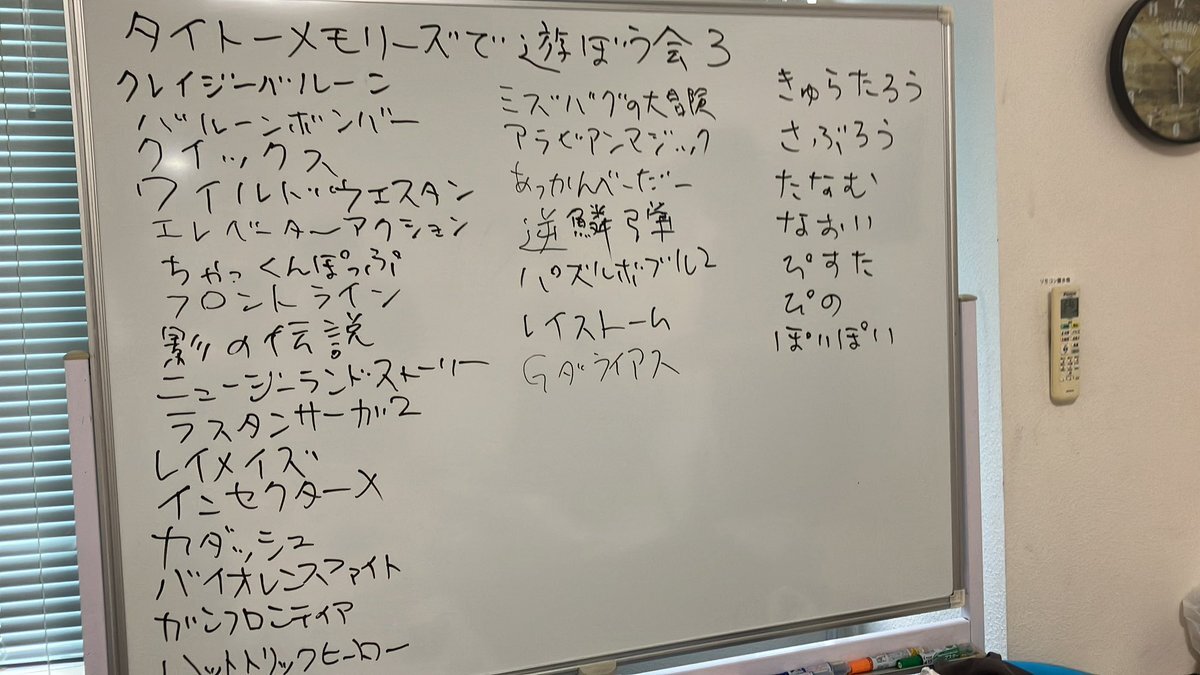 タイトーメモリーズで遊ぼう会3
クレイジーバルーン
バルーンボンバー
クイックス
ワイルドウェスタン
エレベーターアクション
ちゃっくんぽっぷ
フロントライン
影の伝説
ニュージーランドストーリー
ラスタンサーガ2
レイメイズ
インセクターX
カダッシュ
バイオレンスファイト
ガンフロンティア
ハットトリックヒーロー
ミズバクの大冒険
アラビアンマジック
あっかんべぇだー
逆鱗弾
パズルボブル2
レイストーム
Gダライアス
きゅらたろう
さぶろう
たなむ
なおい
ぴすた
ぴの
ぽいぽい
リモコン置き場